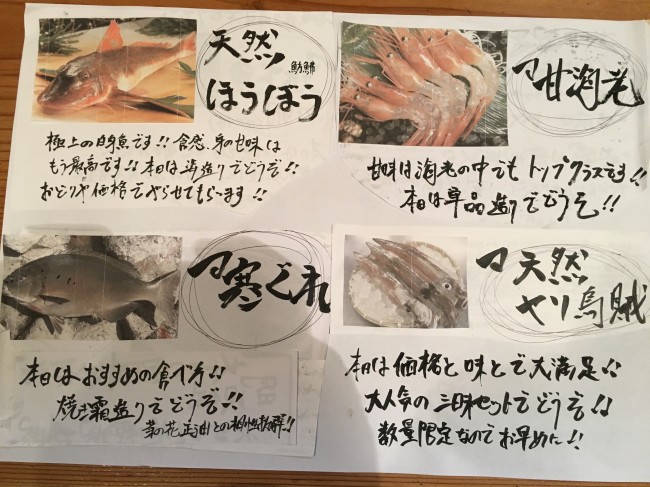 天然
魴鮄
ほうぼう
極上の白身魚です!! 食感、身の甘味は
もう最高です!! 本日は姿造りでどうぞ!!
おどりや価格でやらせてもらいます!!
マ甘海老
甘味は海老の中でもトップクラスです!!
本日は単品造りでどうぞ!!
マ寒ぐれ
本日はおすすめの食べ方!!
焼き霜造りでどうぞ!!
菜の花正油との相性抜群!!
マ天然
ヤリ烏賊
本日は価格と味とで大満足!!
大人気の三昧セットでどうぞ!!
数量限定なのでお早めに!!